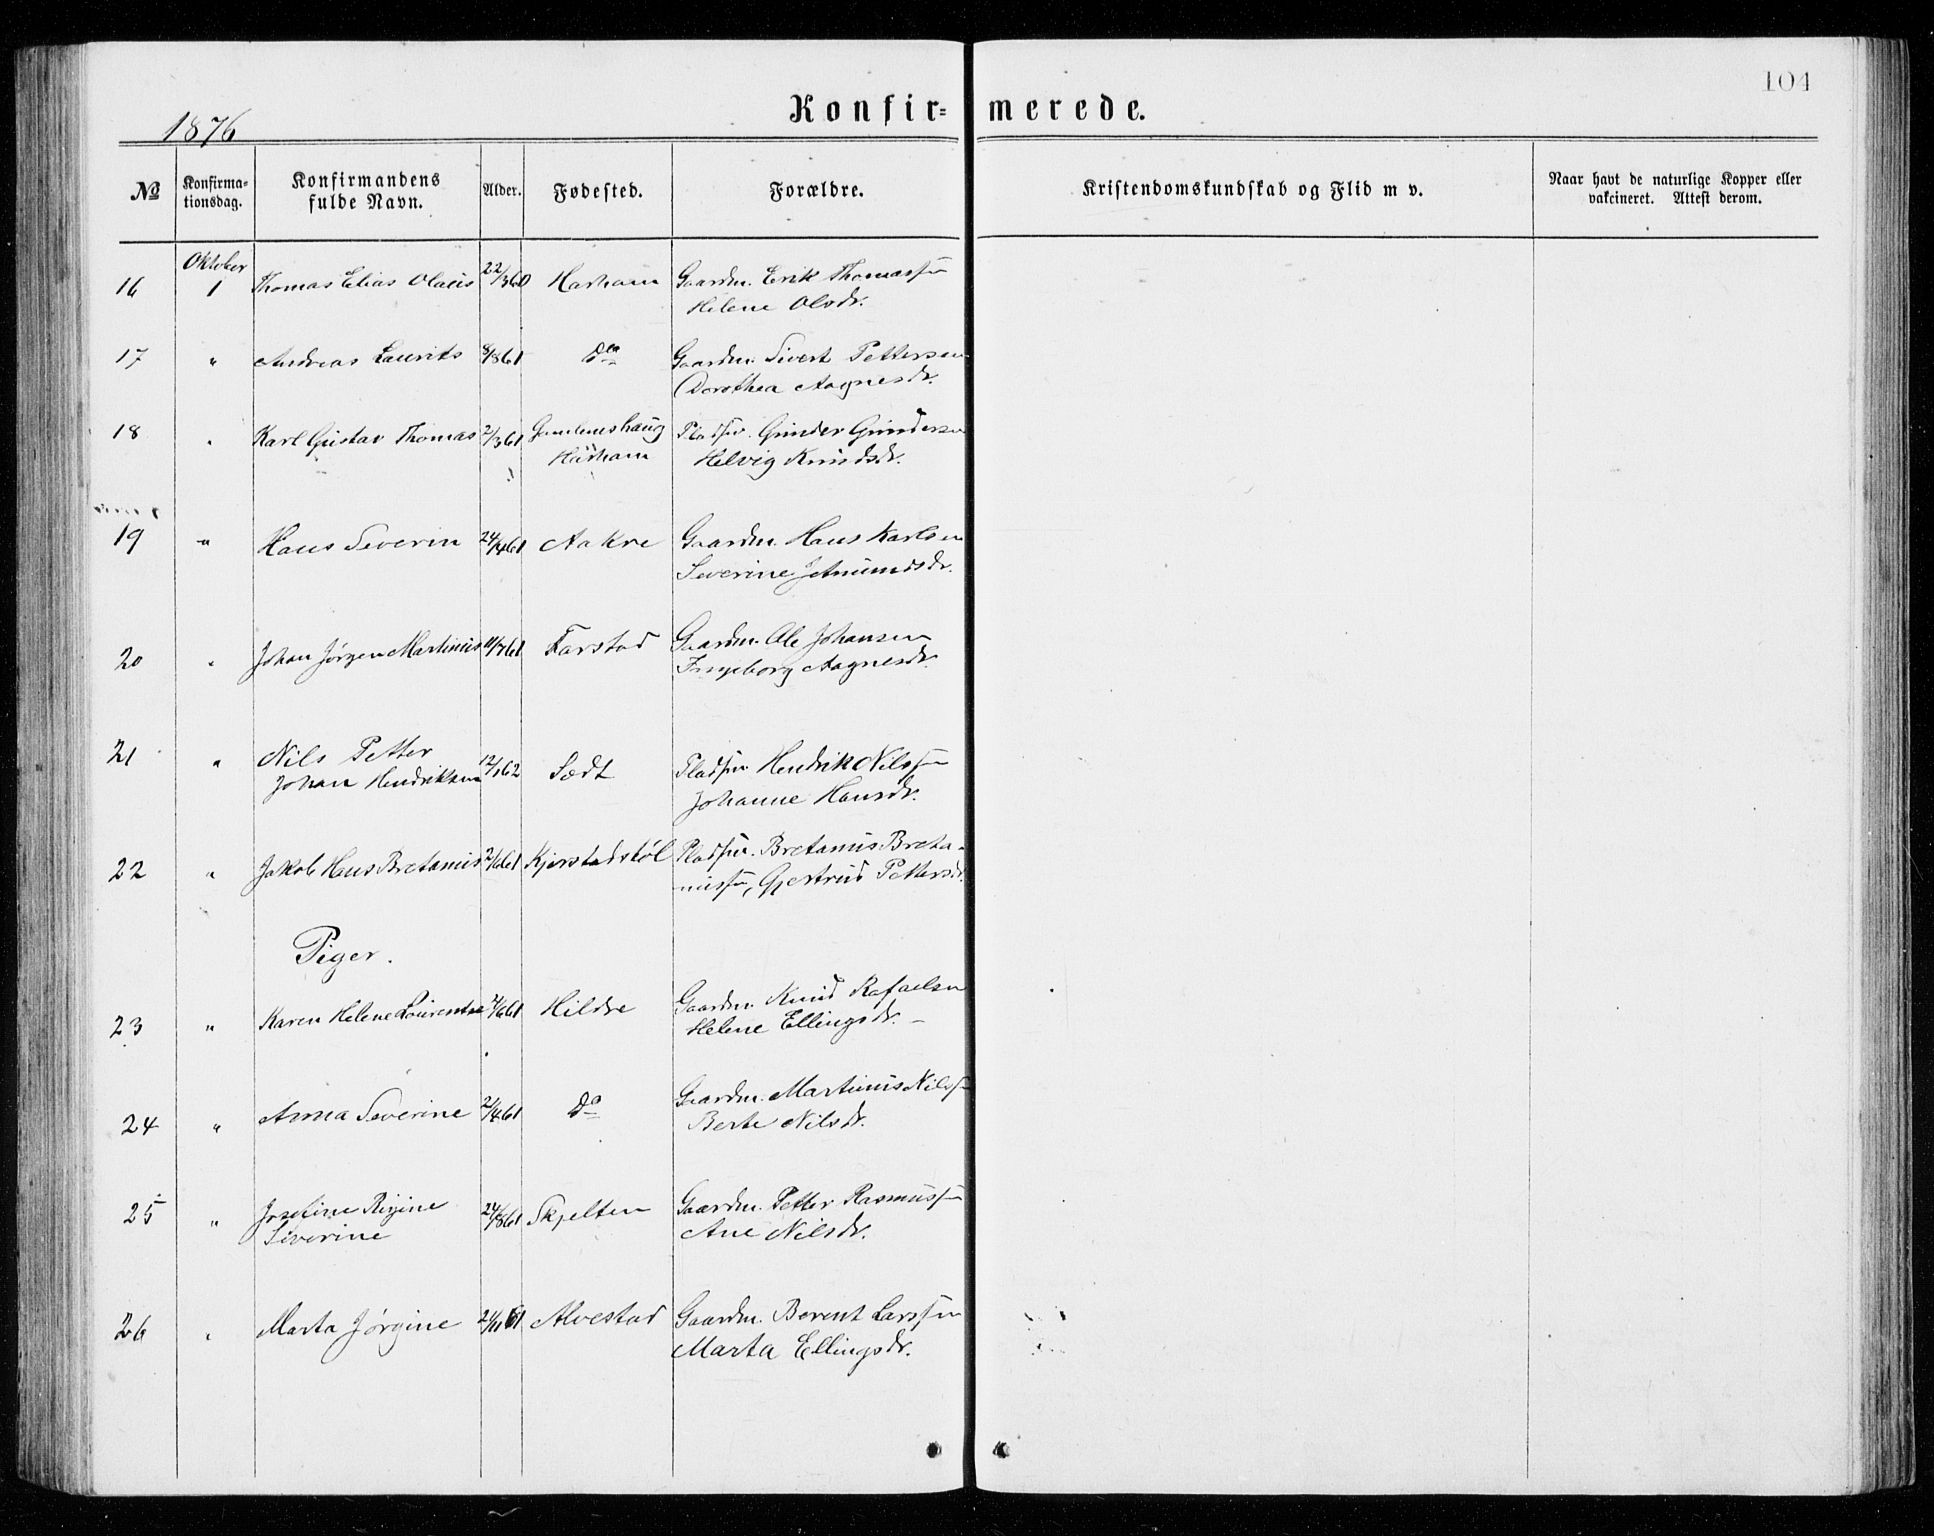 104
Konfirmerede.
1876
No Konfirma-tionsdag. Konfirmandens fulde Navn. Alder. Fødested. Forældre. Kristendomskundskab og Flid m v. Naar havt de naturlige Kopper eller vakcineret. Attest derom.
Oktober
16 1 Thomas Elias Olaus 22/3 60 Harham Gaardm. Erik Thomassen
Helene Olsdr.
17 " Andreas Laurits 8/8 61 do Gaardm. Sivert Pettersen
Dorothea Aagnesdr.
18 " Karl Gustav Thomas 2/3 61 Pladsm. Gunder Gundersen
Harham Helvig Knudsdr.
19 " Hans Severin 24/4 61 Aakre Gaardm. Hans Karlsen
Severine
20 " Johan Jørgen Martinus 11/7 61 Farstad Gaardm. Ole Johansen
Ingeborg Aagnesdr.
21 " Nils Petter
Johan Hendriksen 12/1 62 Sædt Pladsm. Hendrik Nilssen
Johanne Hansdr.
22 " Jakob Hans Bretanus 2/6 61 Kjerstadstøl Pladsm. Bretanus Breta-
nussen, Gjertrud Pettersdr.
Piger.
23 " Karen Helene Laurentse 7/6 61 Hildre Gaardm. Knud Rafaelsen
Helene Ellingsdr. -
24 " Anna Severine 21/4 61 do Gaardm. Martinus Nilssen
Berte Nilsdr.
25 " Josefine Regine
Severine 24/8 61 Skjelten Gaardm. Petter Rasmussen
Ane Nilsdr.
26 " Marta Jørgine 21/11 61 Alvestad Gaardm. Berent Larssen
Marta Ellingsdr.